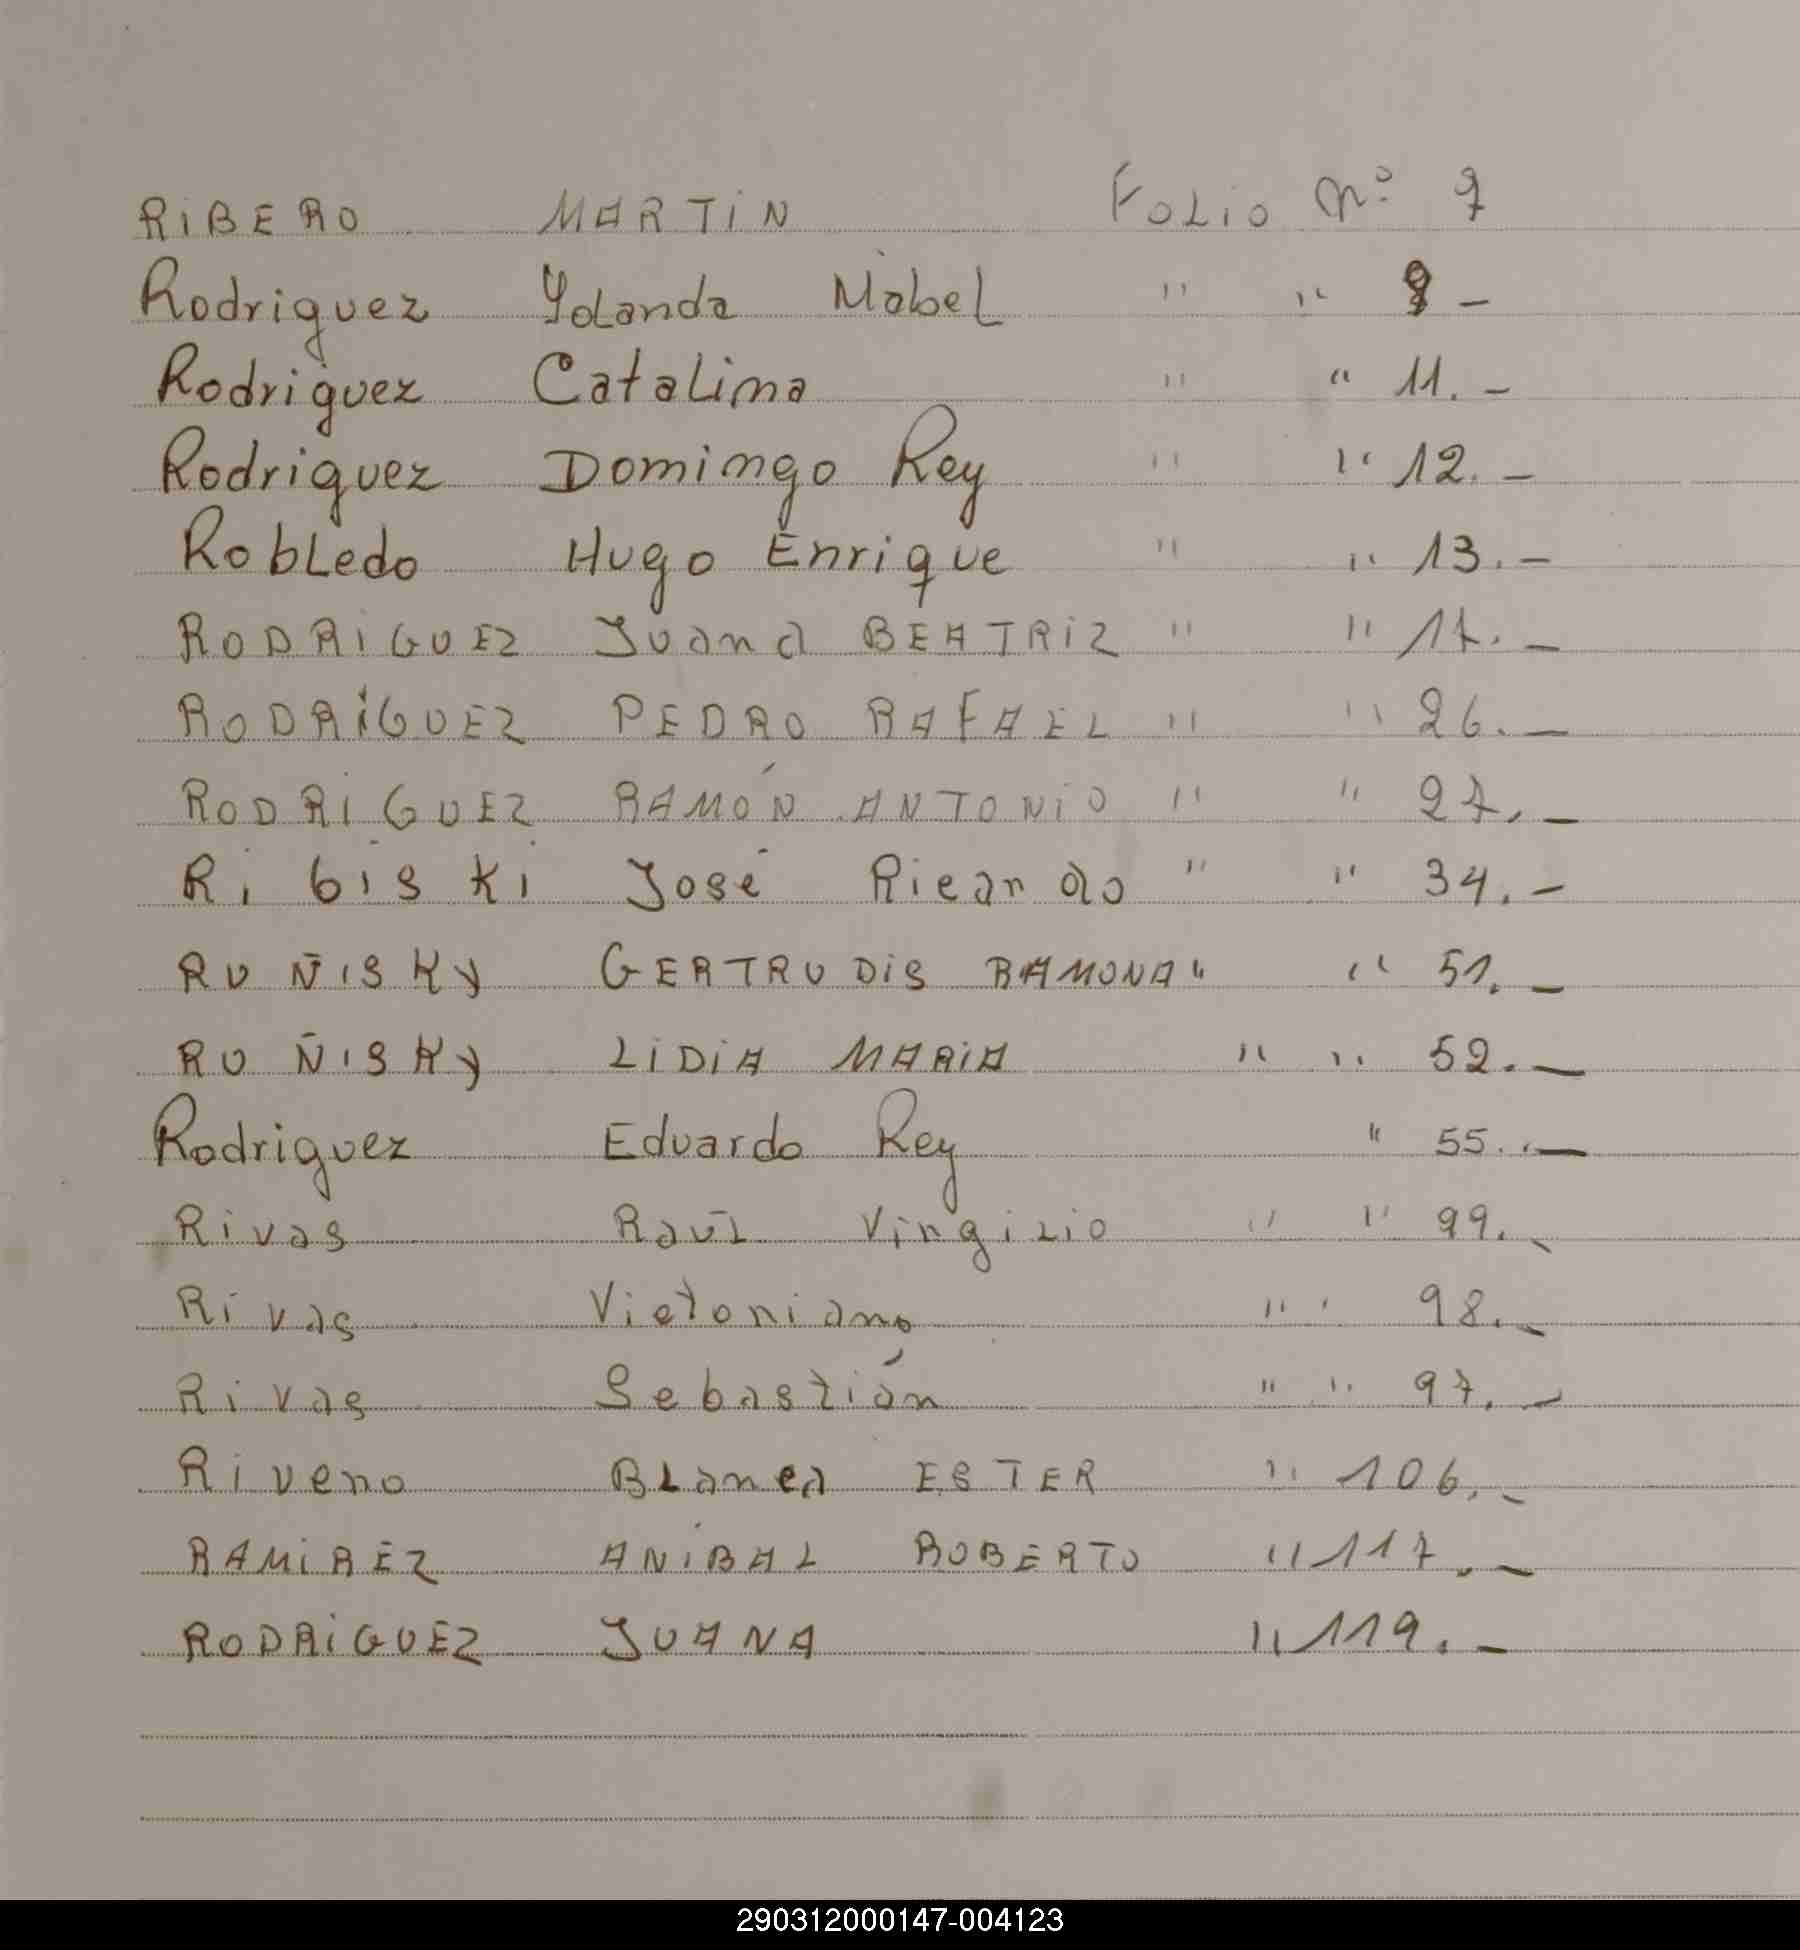 RIBERO MARTIN FOLIO Nº 7
Rodriguez Yolanda Mabel " " 8 -
Rodriguez Catalina " " 11.-
Rodriguez Domingo Rey " " 12.-
Robledo Hugo Enrique " " 13.-
RODRIGUEZ Juana BEATRIZ " " 17.-
RODRÍGUEZ PEDRO RAFAEL " " 26.-
RODRIGUEZ RAMÓN ANTONIO " " 27.-
Ribiski José Ricardo " " 34.-
RUÑISKY GERTRUDIS RAMONA " " 51.-
RUÑISKY LIDIA MARIA " " 52.-
Rodriguez Eduardo Rey " 55.-
Rivas Raúl Virgilio " " 99.-
Rivas Victoriano " " 98.-
Rivas Sebastián " " 97.-
Rivero Blanca ESTER " 106.-
RAMIREZ ANIBAL ROBERTO " 117.-
RODRIGUEZ JUANA " 119.-
290312000147-004123